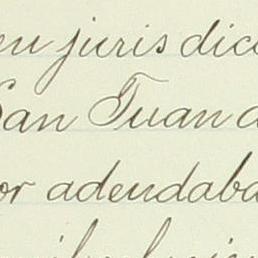 en jurisdic
San Juan
or adeudaba